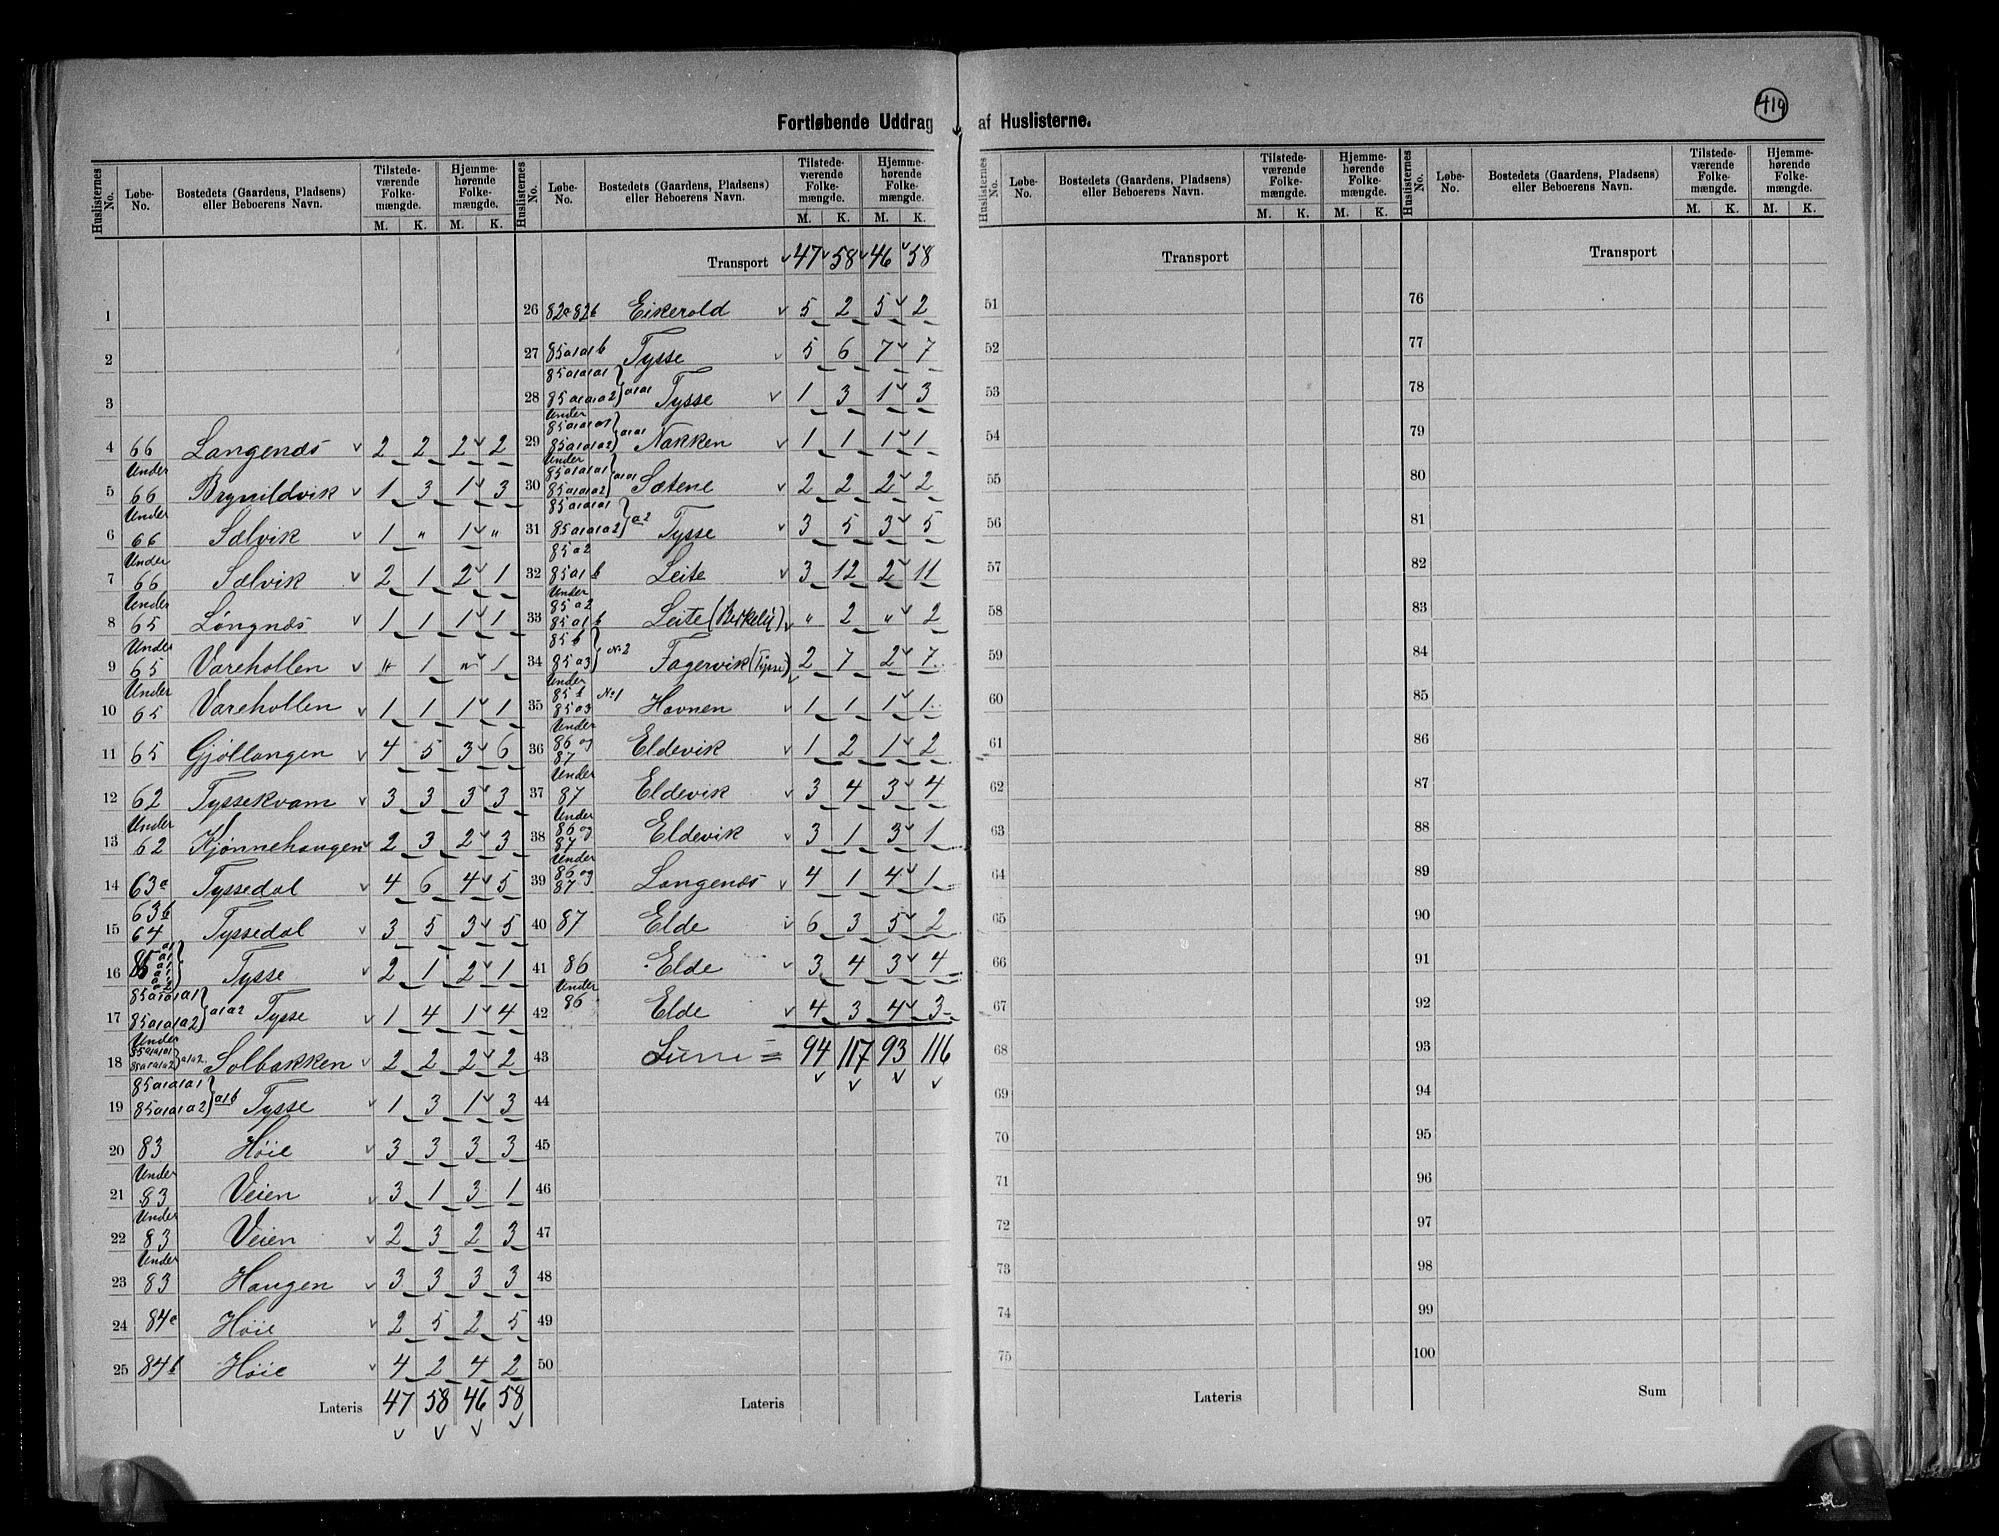 419
Fortløbende Uddrag af Huslisterne.
Huslisternes No. Løbe-No. Bostedets (Gaardens, Pladsens) eller Beboerens Navn. Tilstedeværende Folkemængde. M. K. Hjemmehørende Folkemængde. M. K.
1
2
3
4 66 Langenæs 2 2 2 2
5 Under 66 Brynildvik 1 3 1 3
6 Under 66 Sælvik 1 " 1 "
7 Under 66 Sælvik 2 1 2 1
8 Under 65 Løngnæs 1 1 1 1
9 Under 65 Varehollen " 1 " 1
10 Under 65 Varehollen 1 1 1 1
11 65 Gjøllangen 4 5 3 6
12 62 Tyssekvam 3 3 3 3
13 Under 62 Kjønnehaugen 2 3 2 3
14 63a Tyssedal 4 6 4 5
15 63b 64 Tyssedal 3 5 3 5
16 85 Tysse 2 1 2 1
17 85a1a1a1 85a1a1a2 a1a2 Tysse 1 4 1 4
18 Under 85a1a1a1 85a1a1a2 a1a2 Solbakken 2 2 2 2
19 85a1a1a1 85a1a1a2 a1b Tysse 1 3 1 3
20 83 Høie 3 3 3 3
21 Under 83 Veien 3 1 3 1
22 Under 83 Veien 2 3 2 3
23 Under 83 Haugen 3 3 3 3
24 84a Høie 2 5 2 5
25 84b Høie 4 2 4 2
Lateris 47 58 46 58
Huslisternes No. Løbe-No. Bostedets (Gaardens, Pladsens) eller Beboerens Navn. Tilstedeværende Folkemængde. M. K. Hjemmehørende Folkemængde. M. K.
Transport 47 58 46 58
26 82a 82b Eikerold 5 2 5 2
27 85a1a1b Tysse 5 6 7 7
28 85a1a1a1 85a1a1a2 a1a1 Tysse 1 3 1 3
29 Under 85a1a1a1 85a1a1a2 a1a1 Nakken 1 1 1 1
30 Under 85a1a1a1 85a1a1a2 a1a1 Sætene 2 2 2 2
31 85a1a1a1 85a1a1a2 a2 Tysse 3 5 3 5
32 85a2 85a1b Leite 3 12 2 11
33 Under 85a2 85a1b Leite (Birkelii) " 2 " 2
34 85b 85a3 No 2 Fagervik (Tysse) 2 7 2 7
35 Under 85b 85a3 No 1 Havnen 1 1 1 1
36 Under 86 og 87 Eldevik 1 2 1 2
37 Under 87 Eldevik 3 4 3 4
38 Under 86 og 87 Eldevik 3 1 3 1
39 Under 86 og 87 Langenæs 4 1 4 1
40 87 Elde 6 3 5 2
41 86 Elde 3 4 3 4
42 Under 86 Elde 4 3 4 3
43 Sum = 94 117 93 116
44
45
46
47
48
49
50
Lateris
Huslisternes No. Løbe-No. Bostedets (Gaardens, Pladsens) eller Beboerens Navn. Tilstedeværende Folkemængde. M. K. Hjemmehørende Folkemængde. M. K.
Transport
51
52
53
54
55
56
57
58
59
60
61
62
63
64
65
66
67
68
69
70
71
72
73
74
75
Lateris
Huslisternes No. Løbe-No. Bostedets (Gaardens, Pladsens) eller Beboerens Navn. Tilstedeværende Folkemængde. M. K. Hjemmehørende Folkemængde. M. K.
Transport
76
77
78
79
80
81
82
83
84
85
86
87
88
89
90
91
92
93
94
95
96
97
98
99
100
Sum